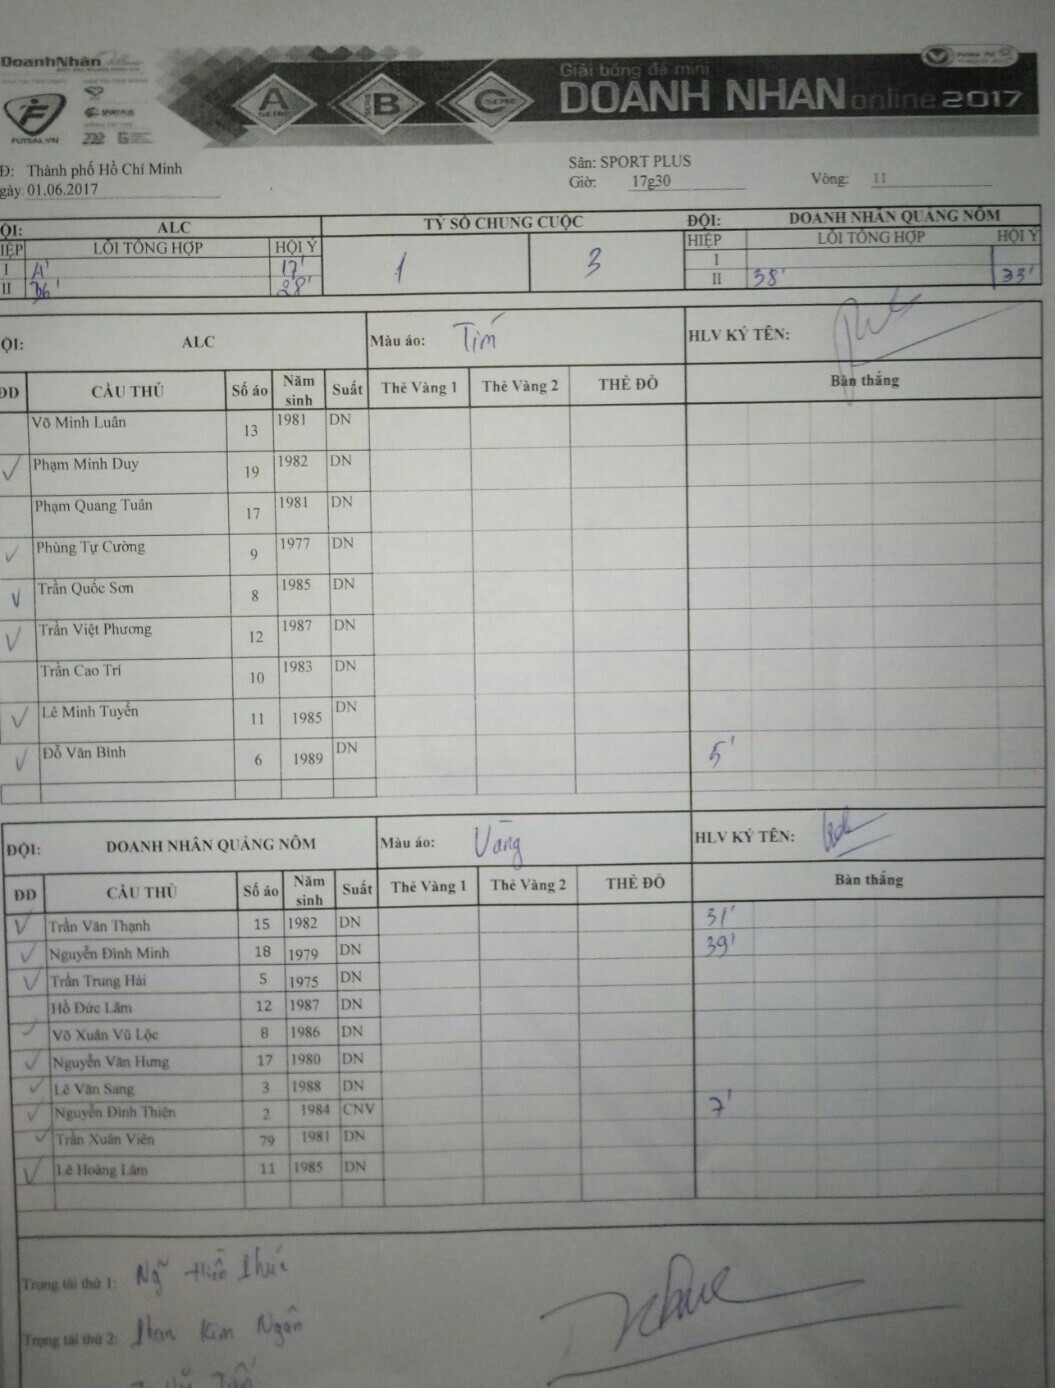 DoanhNhân
FUTSAL.VN
SPORT PLUS
A SERIE
B SERIE
C SERIE
Giải bóng đá mini
DOANH NHAN online 2017
Đ: Thành phố Hồ Chí Minh
gày 01.06.2017
Sân: SPORT PLUS
Giờ: 17g30
Vòng: 11
ỘI: ALC TỶ SỐ CHUNG CUỘC ĐỘI: DOANH NHÂN QUẢNG NÔM
IỆP LỖI TỔNG HỢP HỘI Ý 1 3 HIỆP LỖI TỔNG HỢP HỘI Ý
I 17' I
II 36' 28' II 38' 33'
ỘI: ALC Màu áo: Tím HLV KÝ TÊN:
DD CẦU THỦ Số áo Năm sinh Suất Thẻ Vàng 1 Thẻ Vàng 2 THẺ ĐỎ Bàn thắng
Võ Minh Luân 13 1981 DN
✓ Phạm Minh Duy 19 1982 DN
Phạm Quang Tuân 17 1981 DN
✓ Phùng Tự Cường 9 1977 DN
✓ Trần Quốc Sơn 8 1985 DN
✓ Trần Việt Phương 12 1987 DN
Trần Cao Trí 10 1983 DN
✓ Lê Minh Tuyển 11 1985 DN
✓ Đỗ Văn Bình 6 1989 DN 5'
ĐỘI: DOANH NHÂN QUẢNG NÔM Màu áo: Vàng HLV KÝ TÊN:
DD CẦU THỦ Số áo Năm sinh Suất Thẻ Vàng 1 Thẻ Vàng 2 THẺ ĐỎ Bàn thắng
✓ Trần Văn Thạnh 15 1982 DN 31'
✓ Nguyễn Đình Minh 18 1979 DN 39'
✓ Trần Trung Hải 5 1975 DN
Hồ Đức Lâm 12 1987 DN
✓ Võ Xuân Vũ Lộc 8 1986 DN
✓ Nguyễn Văn Hưng 17 1980 DN
✓ Lê Văn Sang 3 1988 DN
✓ Nguyễn Đình Thiện 2 1984 CNV 7'
✓ Trần Xuân Viên 79 1981 DN
✓ Lê Hoàng Lâm 11 1985 DN
Trọng tài thứ 1: Ng Hiền Thức
Trọng tài thứ 2: Phan Kim Ngân